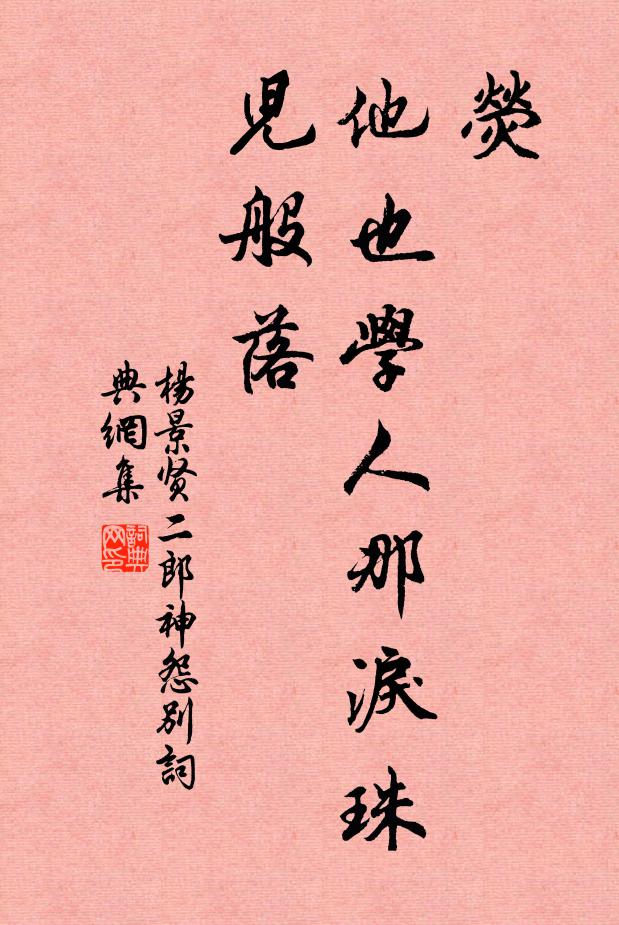 熒
他也學人那淚珠
兒般落
楊景贤二郎神怨别詞
典網集
詞典網印